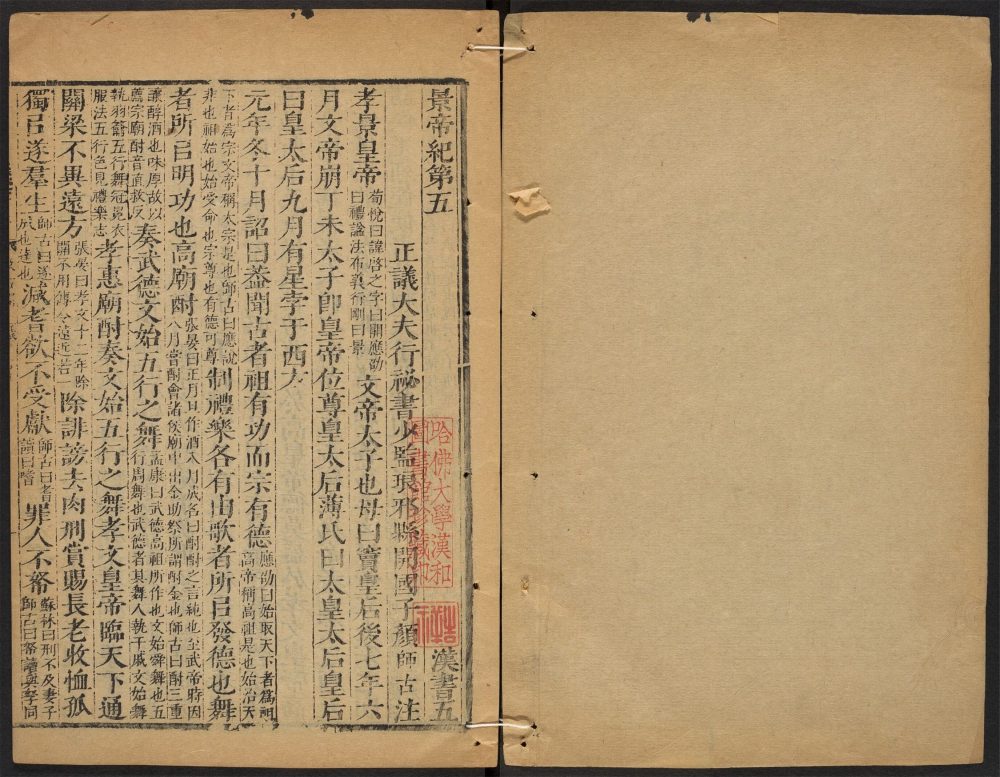 景帝紀第五 漢書五
正議大夫行祕書少監琅邪縣開國子顔師古注
孝景皇帝荀悅曰諱啓之字曰開應劭曰禮謚法布義行剛曰景文帝太子也母曰竇皇后後七年六
月文帝崩丁未太子即皇帝位尊皇太后薄氏曰太皇太后皇后
曰皇太后九月有星孛于西方
元年冬十月詔曰蓋聞古者祖有功而宗有德應劭曰始取天下者爲祖高帝稱高祖是也始治天
下者爲宗文帝稱太宗是也師古曰應說非也祖始也始受命也宗尊也有德可尊制禮樂各有由歌者所㠯發德也舞
者所㠯明功也高廟酎張晏曰正月旦作酒八月成名曰酎酎之言純也至武帝時因八月嘗酎會諸侯廟中出金助祭所謂酎金也師古曰酎三重
釀醇酒也味厚故以薦宗廟酎音直救反奏武德文始五行之舞孟康曰武德高祖所作也文始舜舞也五行周舞也武德者其舞人執干戚文始舞
執羽籥五行舞冠冕衣服法五行色見禮樂志孝惠廟酎奏文始五行之舞孝文皇帝臨天下通
關梁不異遠方張晏曰孝文十二年除關不用傳令遠近若一除誹謗去肉刑賞賜長老收恤孤
獨㠯遂羣生師古曰遂成也達也減耆欲不受獻師古曰耆讀曰嗜罪人不帑蘇林曰刑不及妻子師古曰帑讀與孥同
哈佛大學漢和
圖書館珍藏印